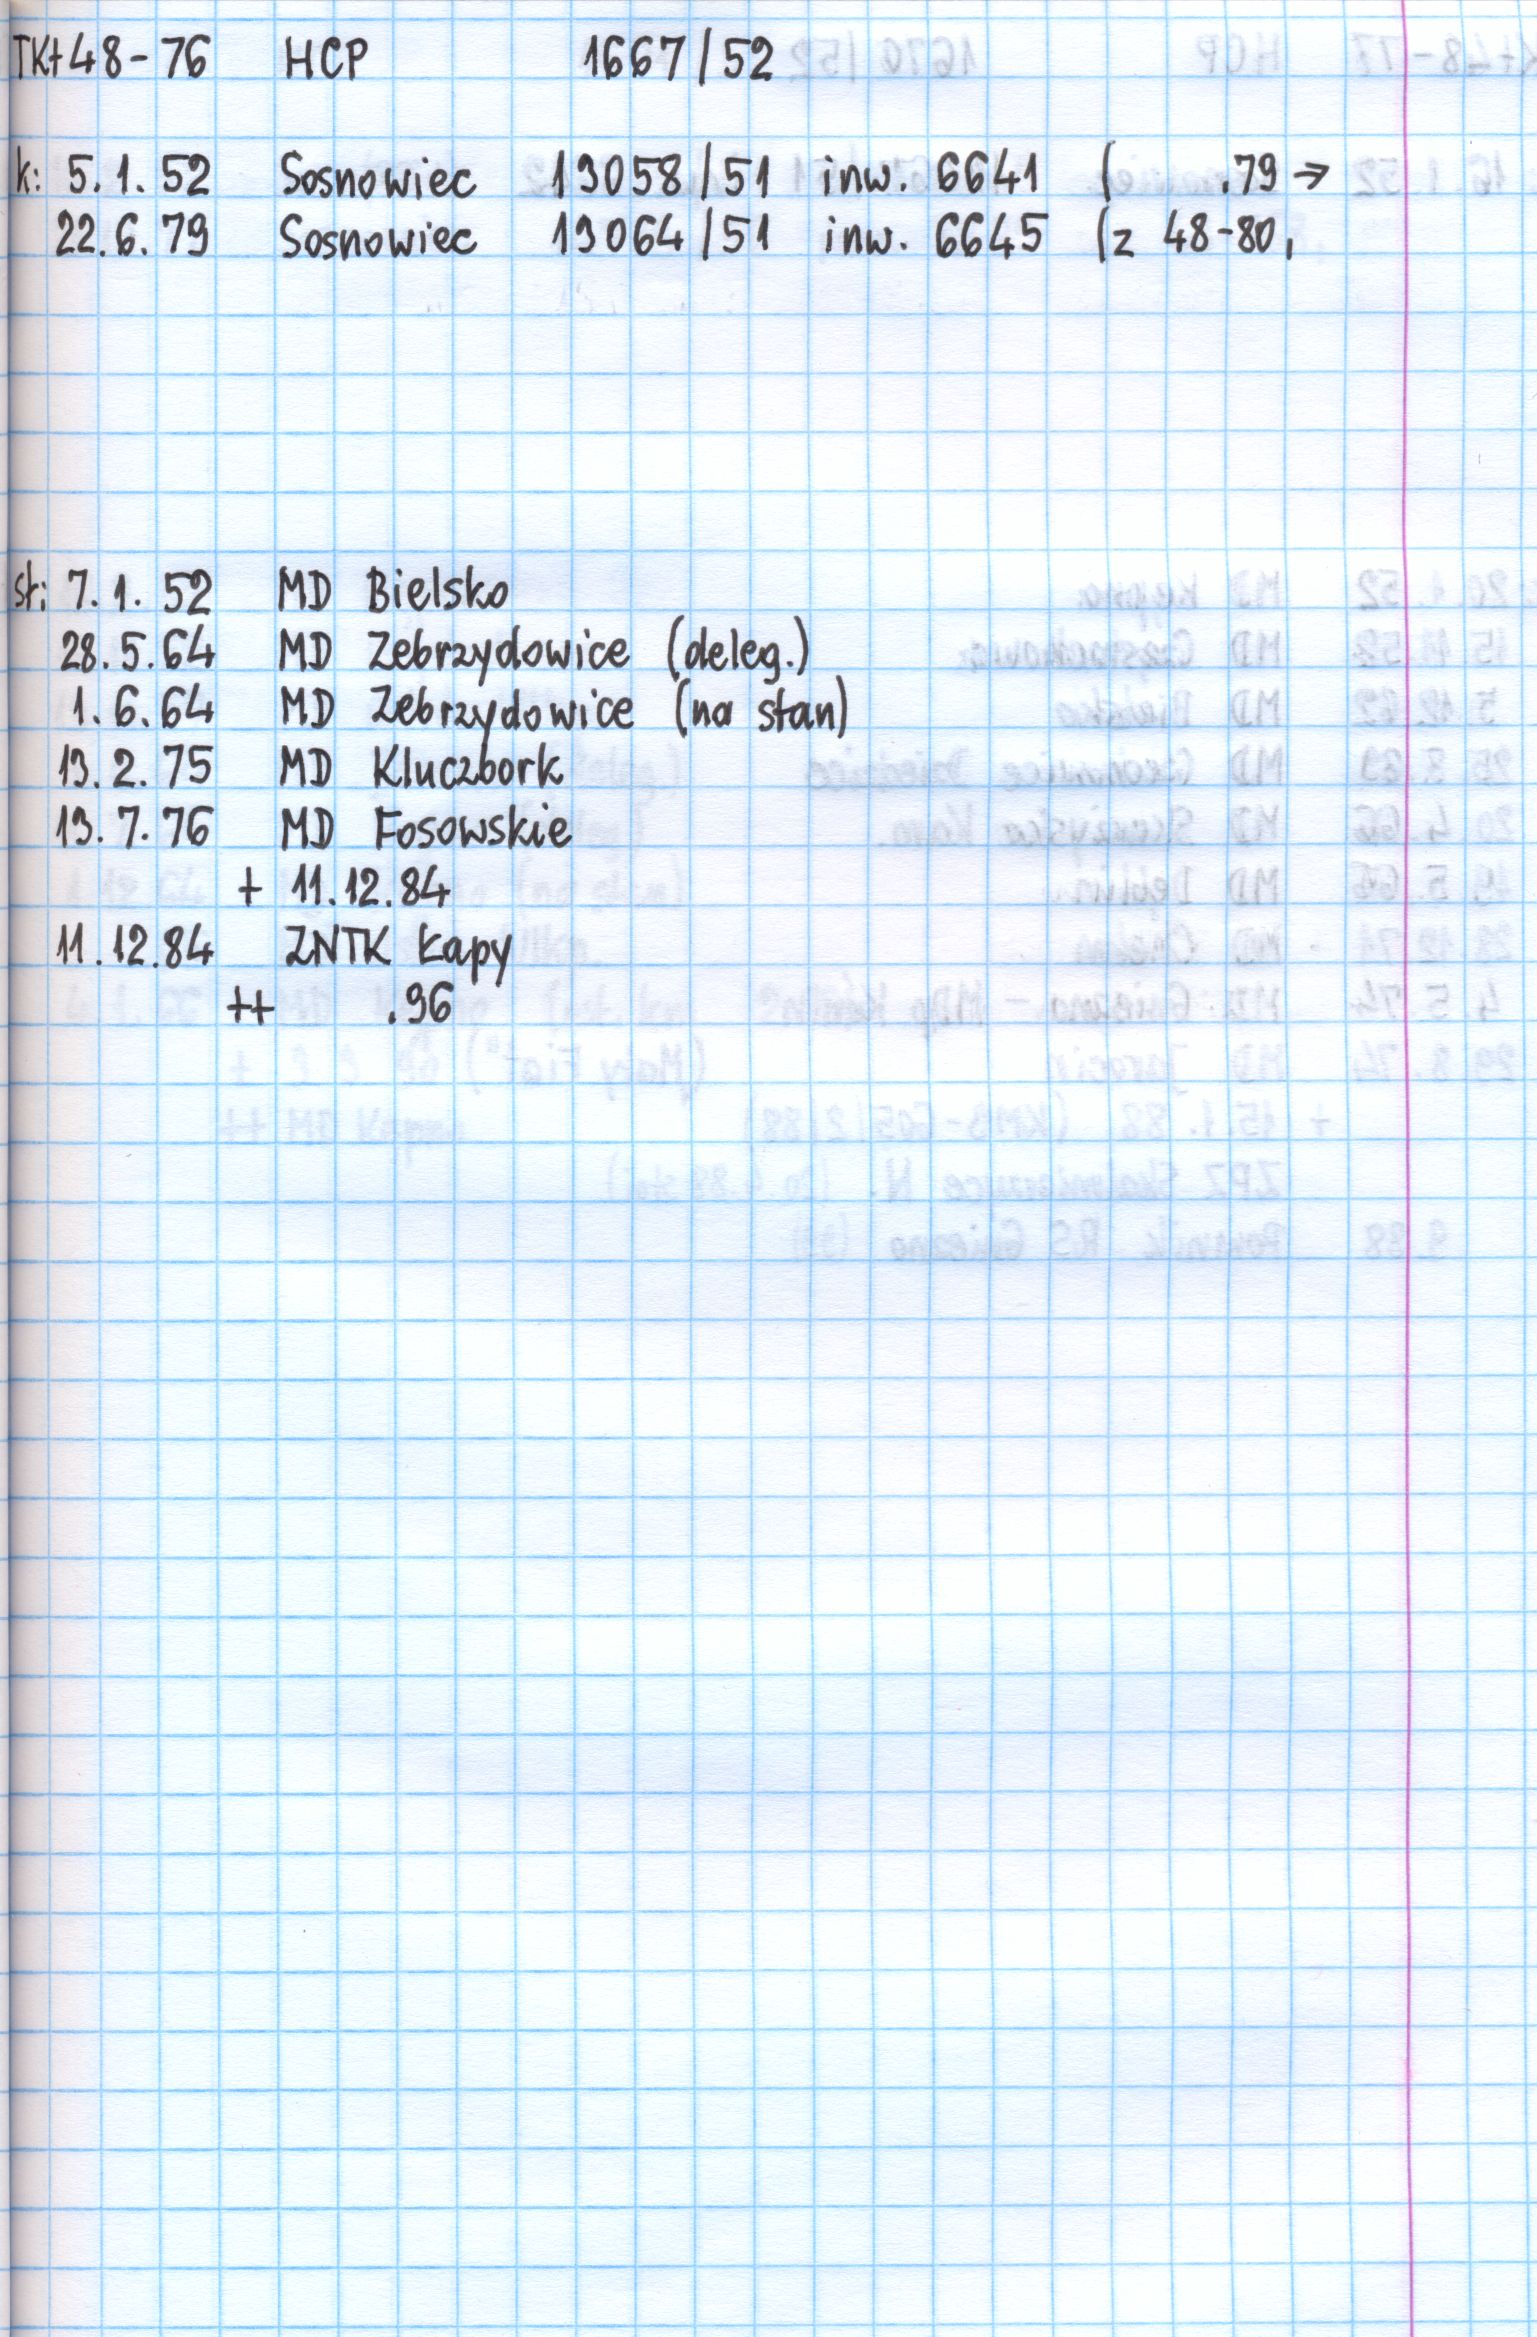 TKt48-76 HCP 1667/52
k: 5.1.52 Sosnowiec 13058/51 inw. 6641 ( .79 →
22.6.79 Sosnowiec 13064/51 inw. 6645 (z 48-80,
st: 7.1.52 MD Bielsko
28.5.64 MD Zebrzydowice (deleg.)
1.6.64 MD Zebrzydowice (na stan)
13.2.75 MD Kluczbork
13.7.76 MD Fosowskie
+ 11.12.84
11.12.84 ZNTK Łapy
++ .96